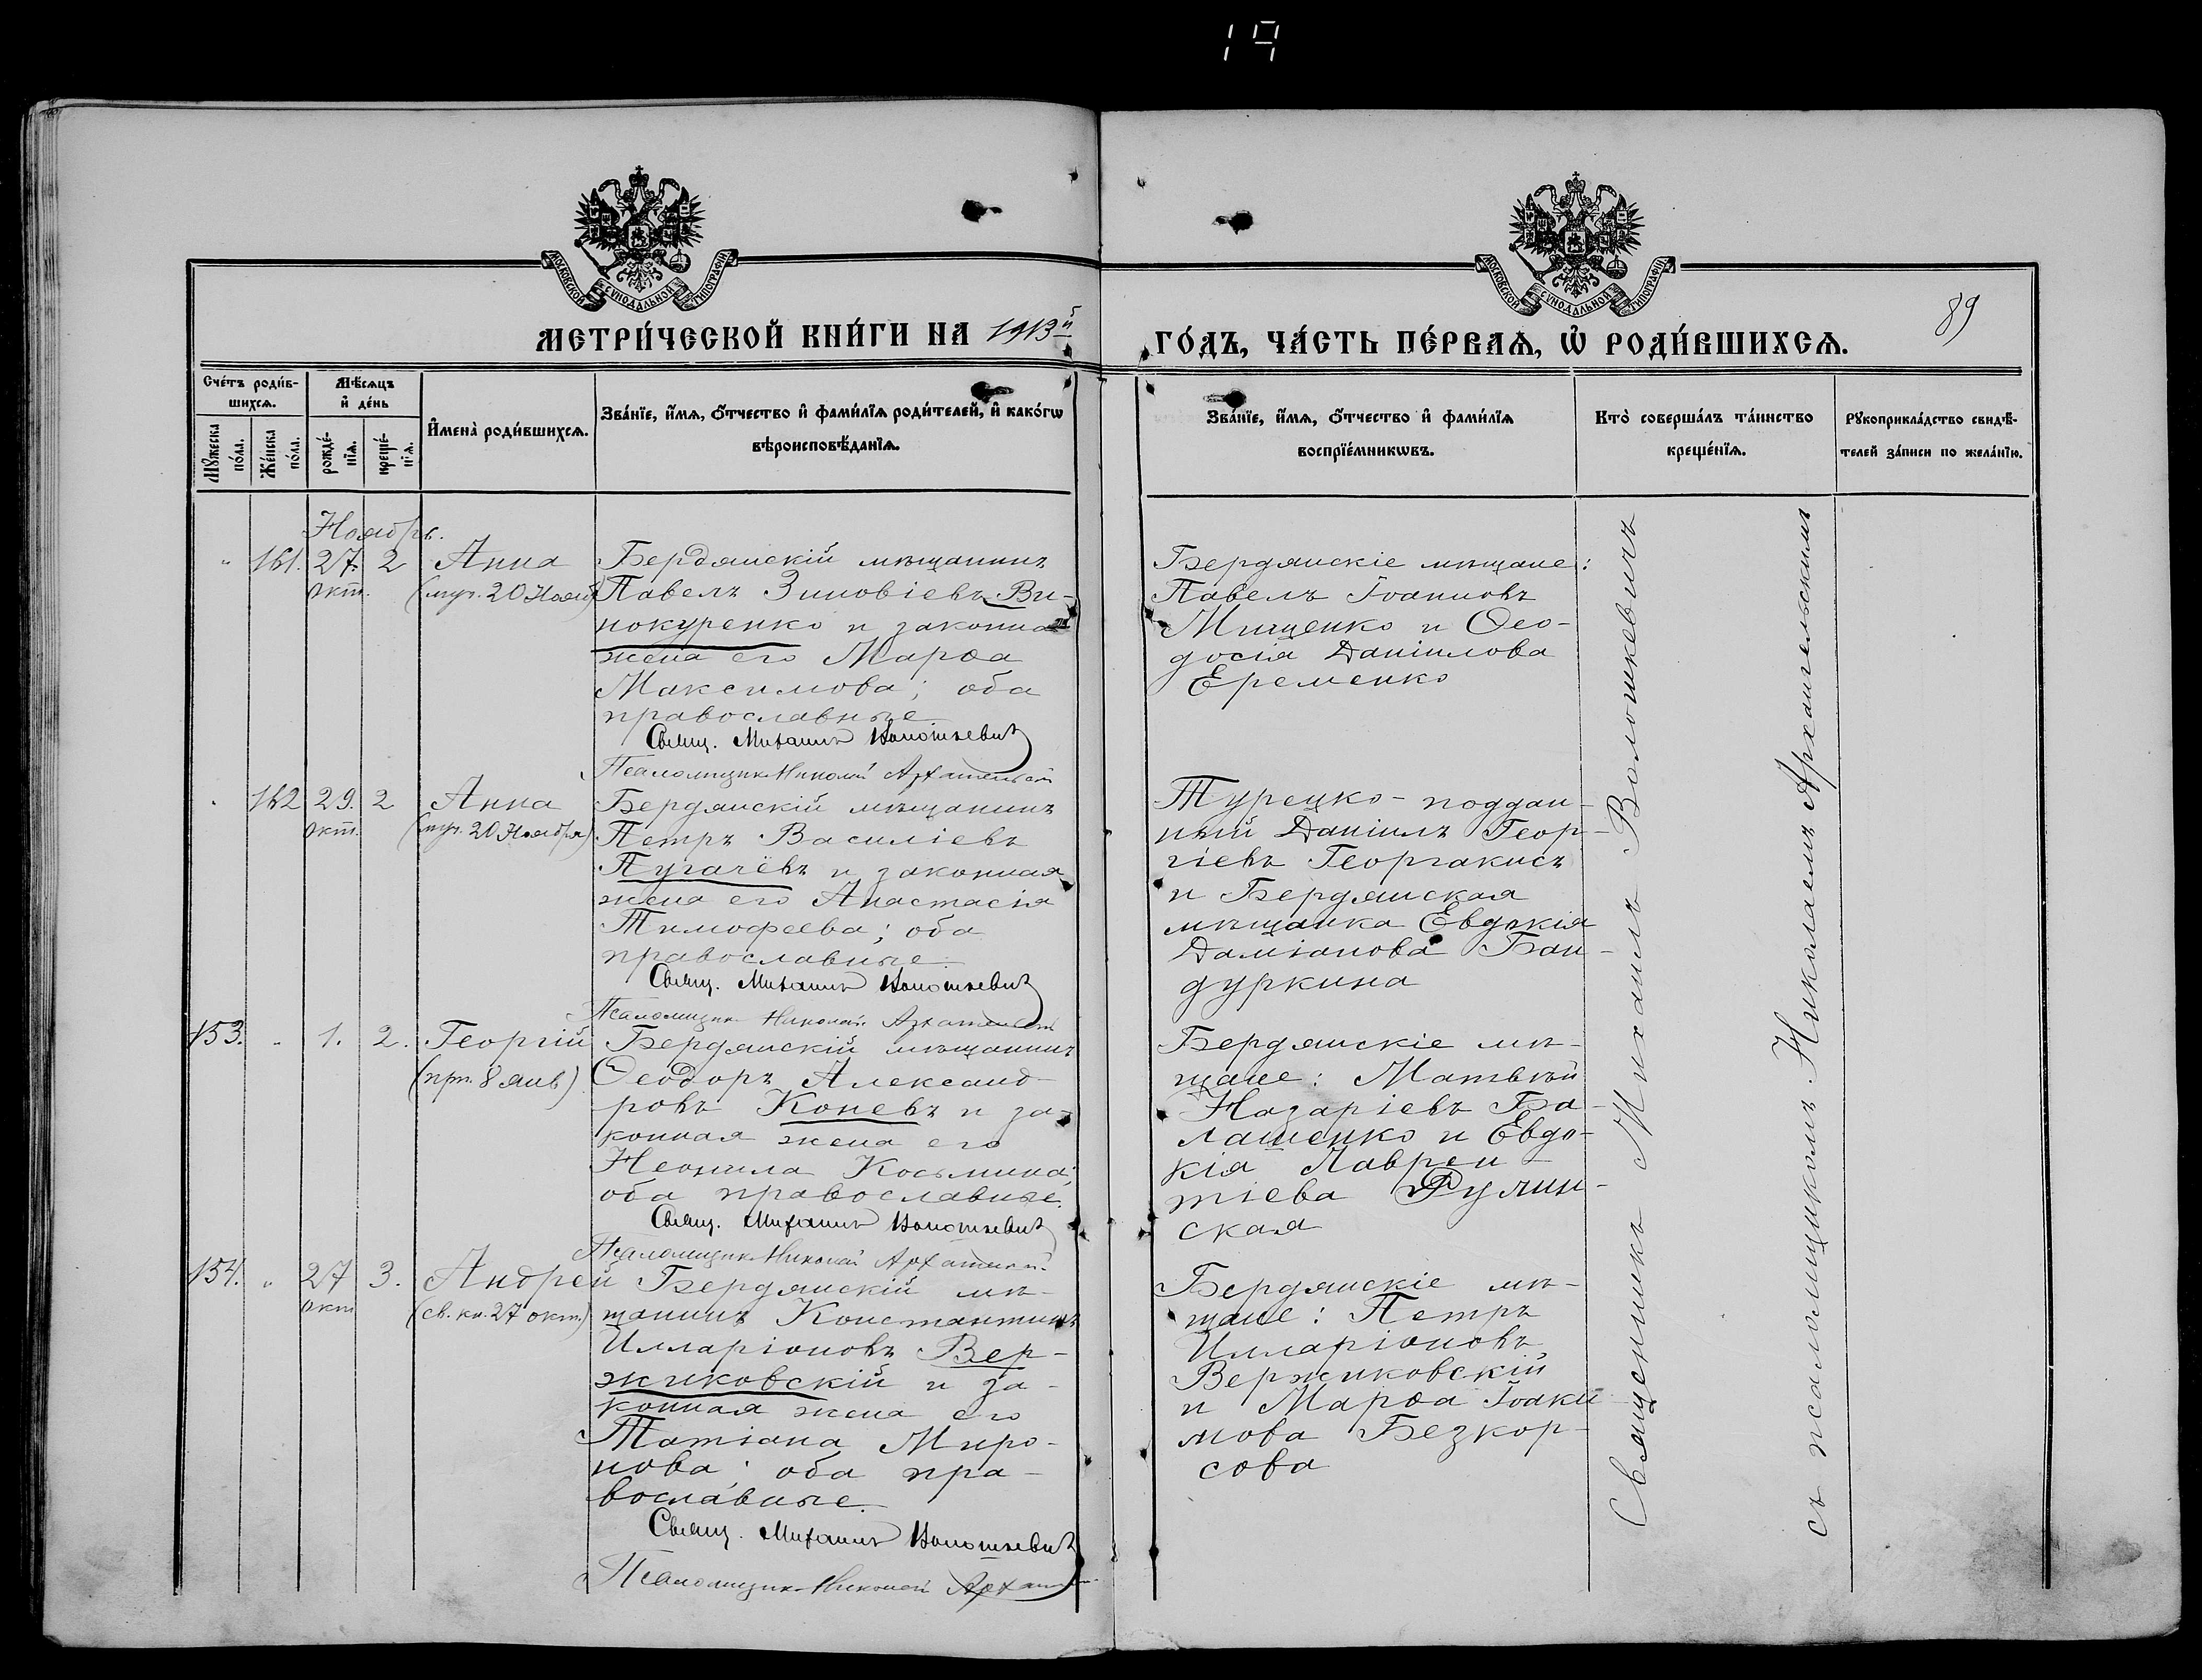 19
МОСКОВСКОЙ СѴНОДАЛЬНОЙ ТИПОГРАФІИ
МОСКОВСКОЙ СѴНОДАЛЬНОЙ ТИПОГРАФІИ
89
МЕТРИ́ЧЕСКОЙ КНИ́ГИ НА 1913й
ГО́ДЪ, ЧА́СТЬ ПЕ́РВАѦ, Ѡ҆ РОДИ́ВШИХСѦ.
Сче́тъ роди́в-
шихсѧ.
Мꙋ́жеска по́ла.
Же́нска по́ла.
Мѣ́сѧцъ
и҆ де́нь
рожде́-
нїѧ.
креще́-
нїѧ.
И҆мена̀ роди́вшихсѧ.
Зва́нїе, и҆́мѧ, ѻ҆́тчество и҆ фами́лїѧ роди́телей, и҆ како́гѡ
вѣроисповѣ́данїѧ.
Зва́нїе, и҆́мѧ, ѻ҆́тчество и҆ фами́лїѧ
воспрїе́мникѡвъ.
Кто̀ соверша́лъ та́инство
креще́нїѧ.
Рꙋкоприкла́дство свидѣ́-
телей за́писи по жела́нїю.
Ноябрь.
" 161. 27. 2 Анна
окт. (муч. 20 Нояб.)
Бердянскій мѣщанинъ
Павелъ Зиновіевъ Ви-
нокуренко и законная
жена его Марѳа
Максимова; оба
православные
Свящ. Михаилъ Волошкевичъ
Псаломщикъ Николай Архангельскій
Бердянскіе мѣщане:
Павелъ Іоанновъ
Мищенко и Ѳео-
досія Даніилова
Еременко
" 162 29. 2 Анна
окт. (муч. 20 Ноября)
Бердянскій мѣщанинъ
Петръ Василіевъ
Пугачёвъ и законная
жена его Анастасія
Тимофеева; оба
православные.
Свящ. Михаилъ Волошкевичъ
Псаломщикъ Николай Архангельскій
Турецко-поддан-
ный Даніилъ Геор-
гіевъ Георгакисъ
и Бердянская
мѣщанка Евдокія
Даміанова Бан-
дуркина
153. " 1. 2. Георгій
(прп. 8 янв)
Бердянскій мѣщанинъ
Ѳеодоръ Александ-
ровъ Коневъ и за-
конная жена его
Неонила Косьмина;
оба православные.
Свящ. Михаилъ Волошкевичъ
Псаломщикъ Николай Архангельскій
Бердянскіе мѣ-
щане: Матвѣй
Назаріевъ Ба-
лашенко и Евдо-
кія Лаврен-
тіева Румин-
ская
154. " 27 3. Андрей
окт (св. кн. 27 окт.)
Бердянскій мѣ-
щанинъ Константинъ
Илларіоновъ Вер-
жиковскій и за-
конная жена его
Татіана Миро-
нова; оба пра-
вославные.
Свящ. Михаилъ Волошкевичъ
Псаломщикъ Николай
Бердянскіе мѣ-
щане: Петръ
Илларіоновъ
Вержиковскій
и Марѳа Іоаки
мова Безкор-
сова
Священникъ Михаилъ Волошкевичъ
съ псаломщикомъ Николаемъ Архангельскимъ